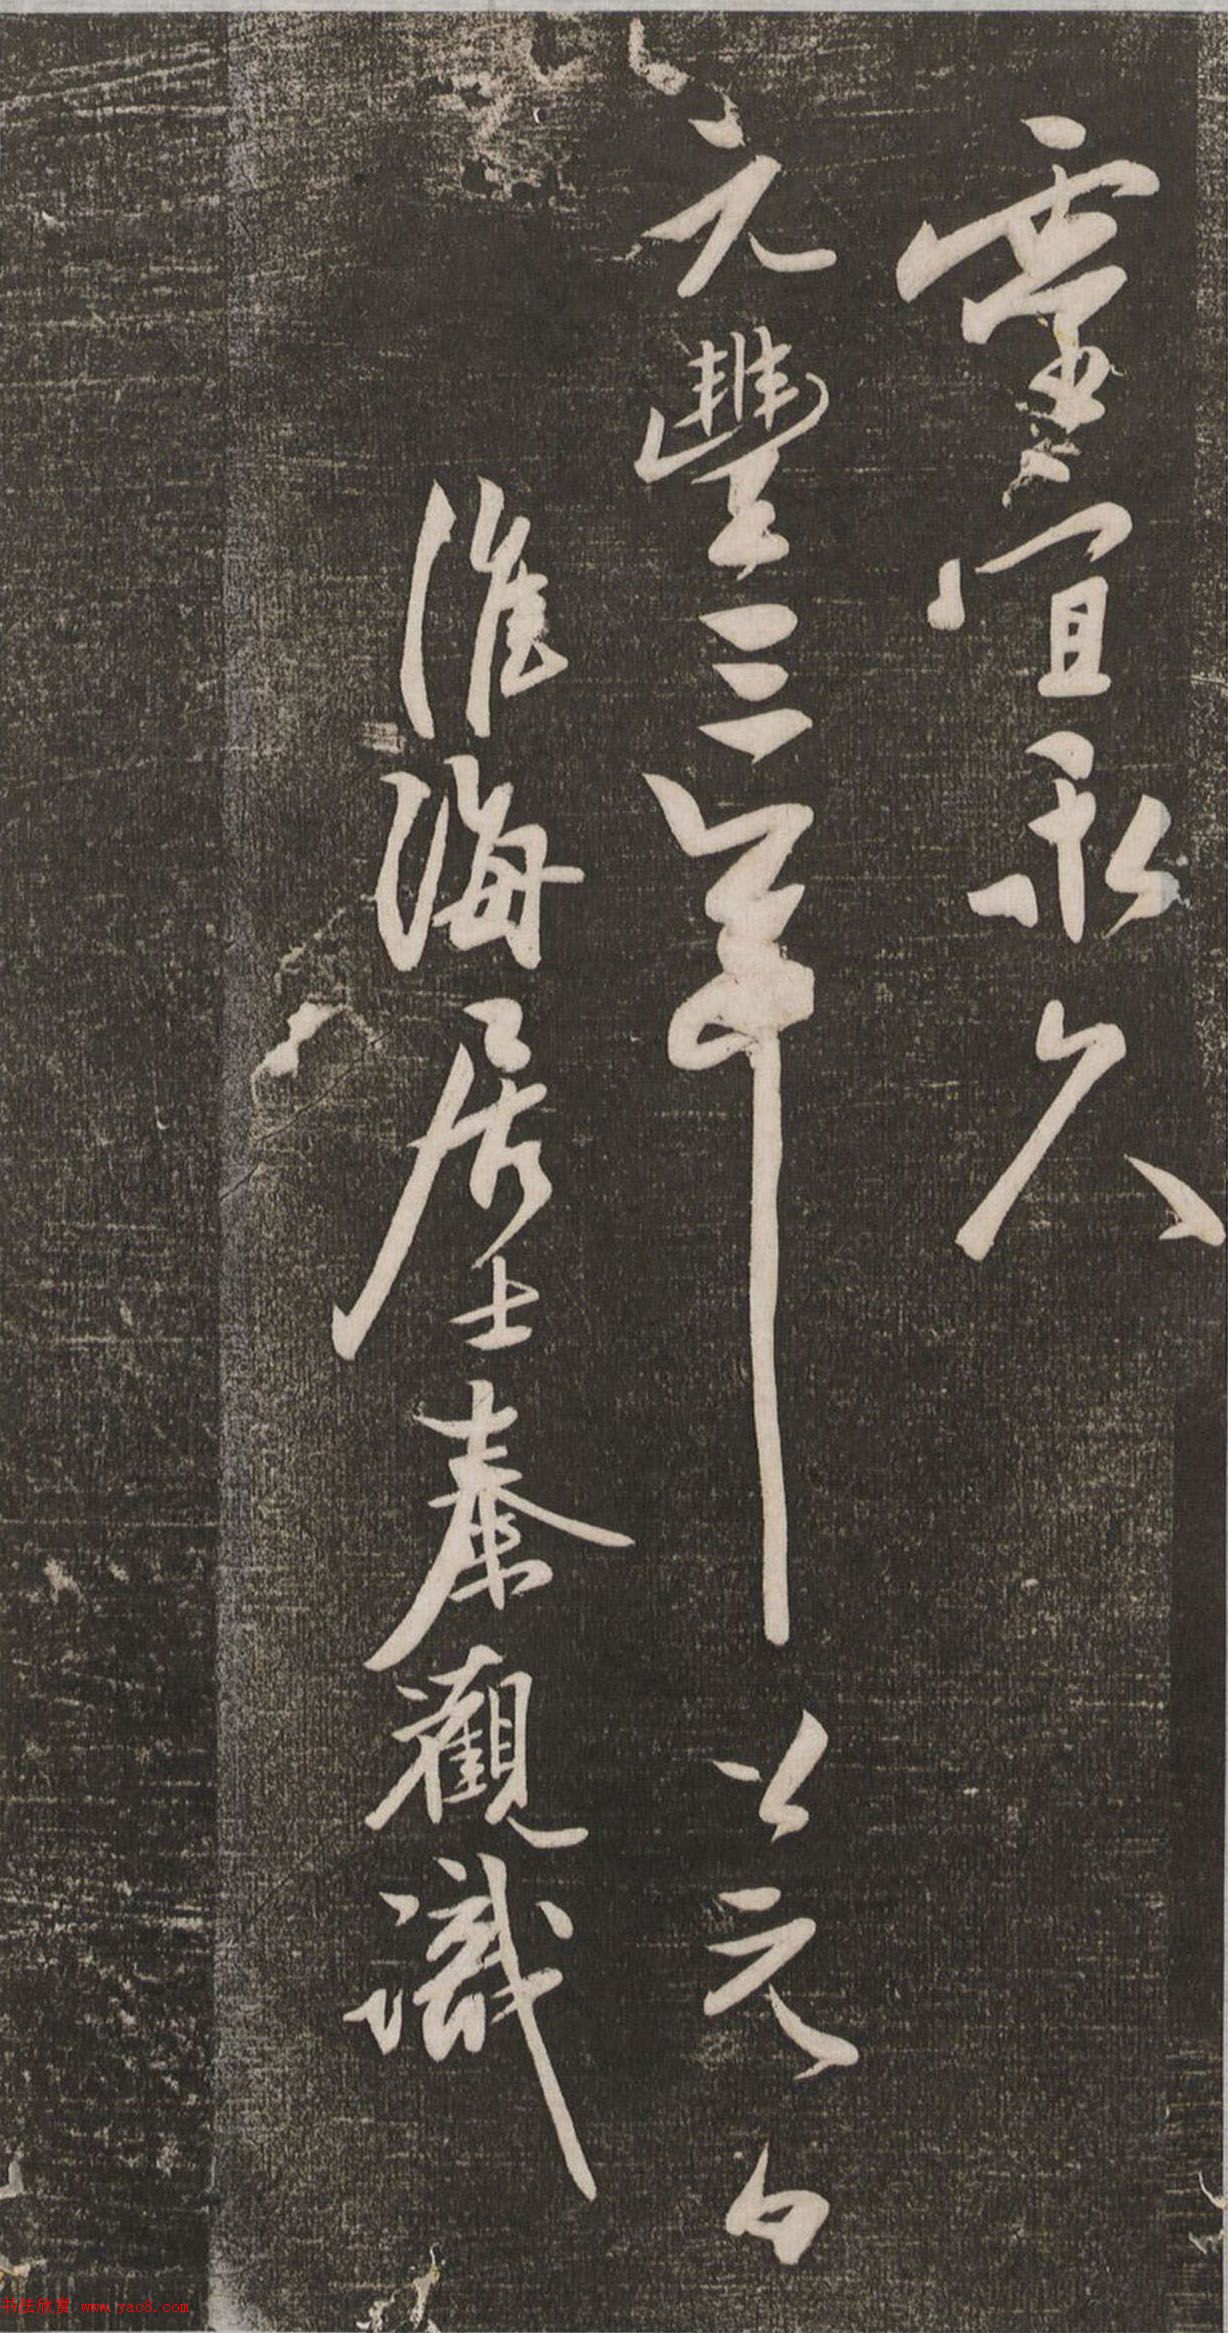 靈宜永久
元豐三年上元日
淮海居士秦觀識
书法欣赏 www.yac8.com